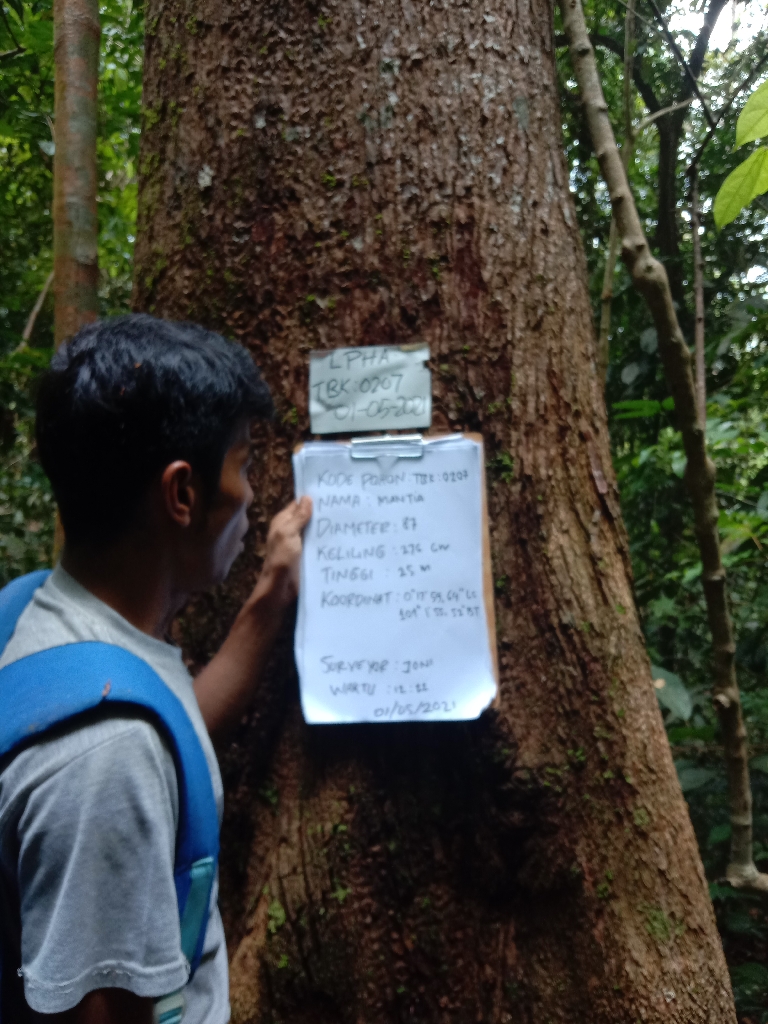 LPHA
TBK:0207
01-05-2021
KODE POHON: TBK:0207
NAMA : MANTIA
DIAMETER : 87
KELILING : 276 Cm
TINGGI : 25 m
KOORDINAT :
SURVEYOR : JONI
WAKTU : 12:22
01/05/2021